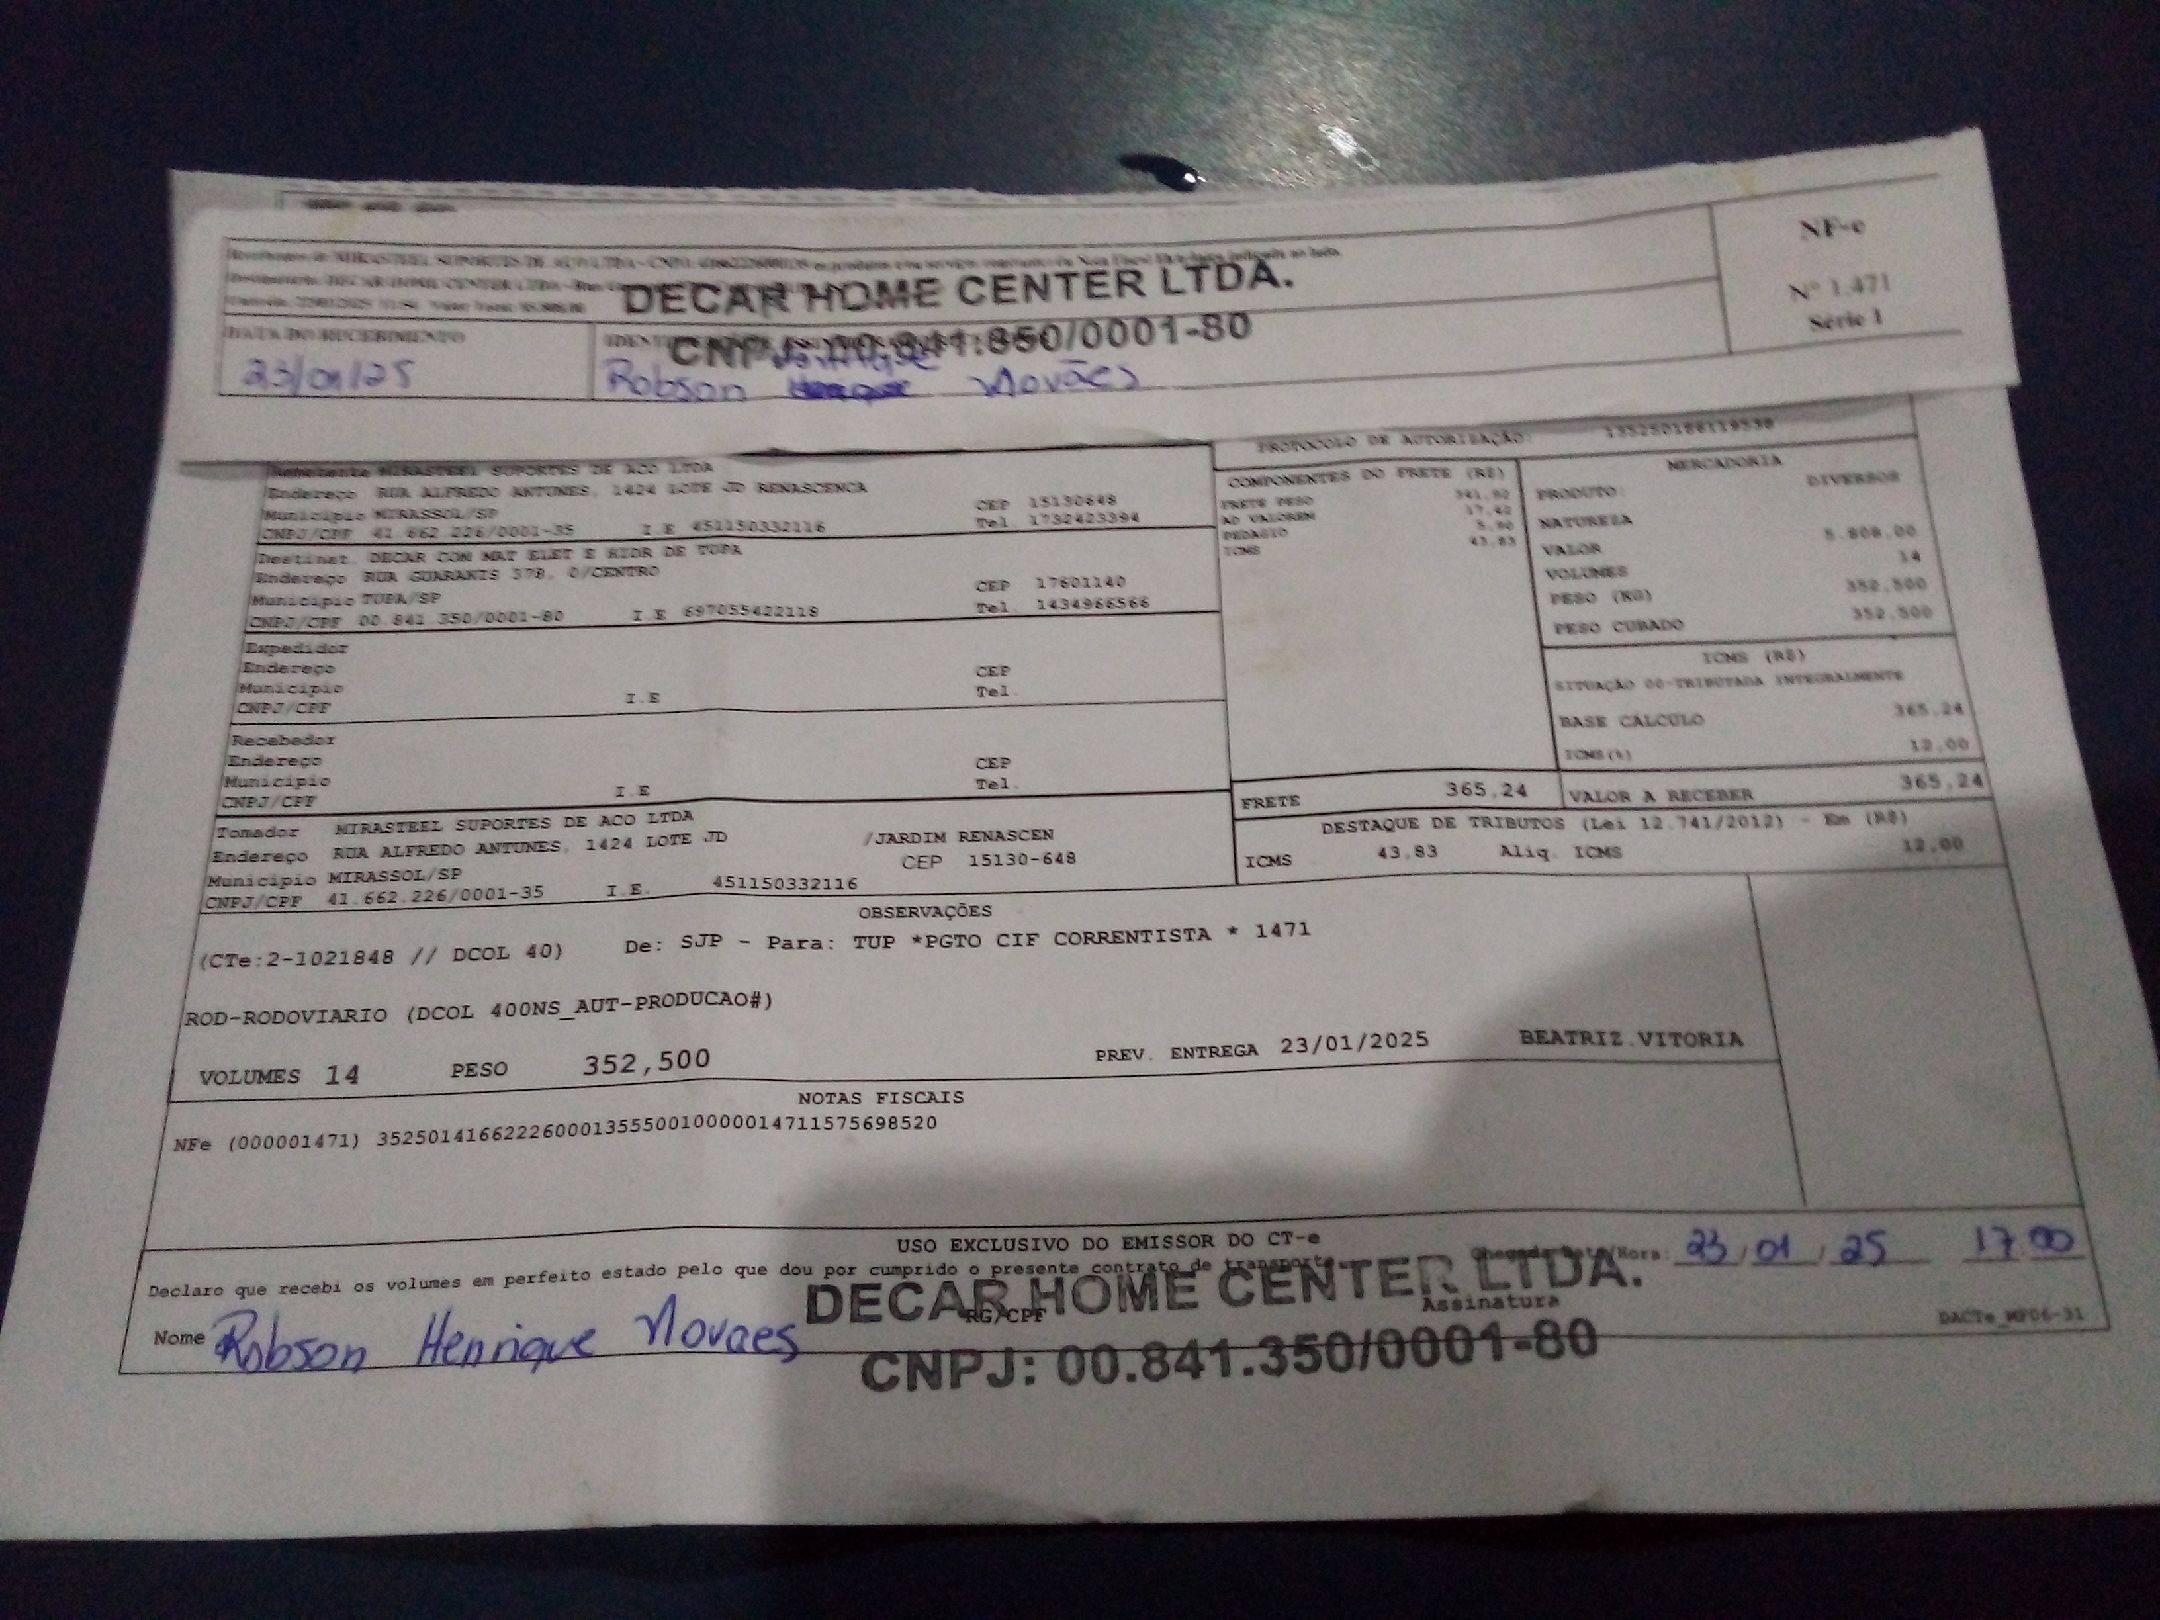 MIRASTEEL SUPORTES DE ACO LTDA
NF-e
DECAR HOME CENTER LTDA.
Nº 1.471
Série 1
DATA DO RECEBIMENTO
CNPJ: 00.841.350/0001-80
23/01/25
Robson Henrique Novaes
PROTOCOLO DE AUTORIZAÇÃO:
Remetente MIRASTEEL SUPORTES DE ACO LTDA
Endereço RUA ALFREDO ANTUNES, 1424 LOTE JD RENASCENCA
CEP 15130648
Município MIRASSOL/SP
Tel. 1732423394
CNPJ/CPF 41.662.226/0001-35 I.E 451150332116
Destinat. DECAR COM MAT ELET E HIDR DE TUPA
Endereço RUA GUARANIS 378, 0/CENTRO
CEP 17601140
Município TUPA/SP
Tel. 1434966566
CNPJ/CPF 00.841.350/0001-80 I.E 697055422118
Expedidor
Endereço CEP
Município Tel.
CNPJ/CPF I.E
Recebedor
Endereço CEP
Município Tel.
CNPJ/CPF I.E
Tomador MIRASTEEL SUPORTES DE ACO LTDA
Endereço RUA ALFREDO ANTUNES, 1424 LOTE JD /JARDIM RENASCEN
Município MIRASSOL/SP CEP 15130-648
CNPJ/CPF 41.662.226/0001-35 I.E. 451150332116
COMPONENTES DO FRETE (R$)
FRETE PESO
AD VALOREM 17,42
PEDAGIO
ICMS 43,83
MERCADORIA
PRODUTO: DIVERSOS
NATUREZA
VALOR 5.808,00
VOLUMES 14
PESO (KG) 352,500
PESO CUBADO 352,500
ICMS (R$)
SITUAÇÃO 00-TRIBUTADA INTEGRALMENTE
BASE CÁLCULO 365,24
ICMS(%) 12,00
FRETE 365,24 VALOR A RECEBER 365,24
DESTAQUE DE TRIBUTOS (Lei 12.741/2012) - Em (R$)
ICMS 43,83 Aliq. ICMS 12,00
OBSERVAÇÕES
(CTe:2-1021848 // DCOL 40) De: SJP - Para: TUP *PGTO CIF CORRENTISTA * 1471
ROD-RODOVIARIO (DCOL 400NS_AUT-PRODUCAO#)
VOLUMES 14 PESO 352,500 PREV. ENTREGA 23/01/2025 BEATRIZ.VITORIA
NOTAS FISCAIS
NFe (000001471) 35250141662226000135550010000014711575698520
USO EXCLUSIVO DO EMISSOR DO CT-e
Declaro que recebi os volumes em perfeito estado pelo que dou por cumprido o presente contrato de transporte.
Chegada Data/Hora: 23/01/25 17:00
DECAR HOME CENTER LTDA.
Nome Robson Henrique Novaes RG/CPF Assinatura
DACTe_MP06-31
CNPJ: 00.841.350/0001-80